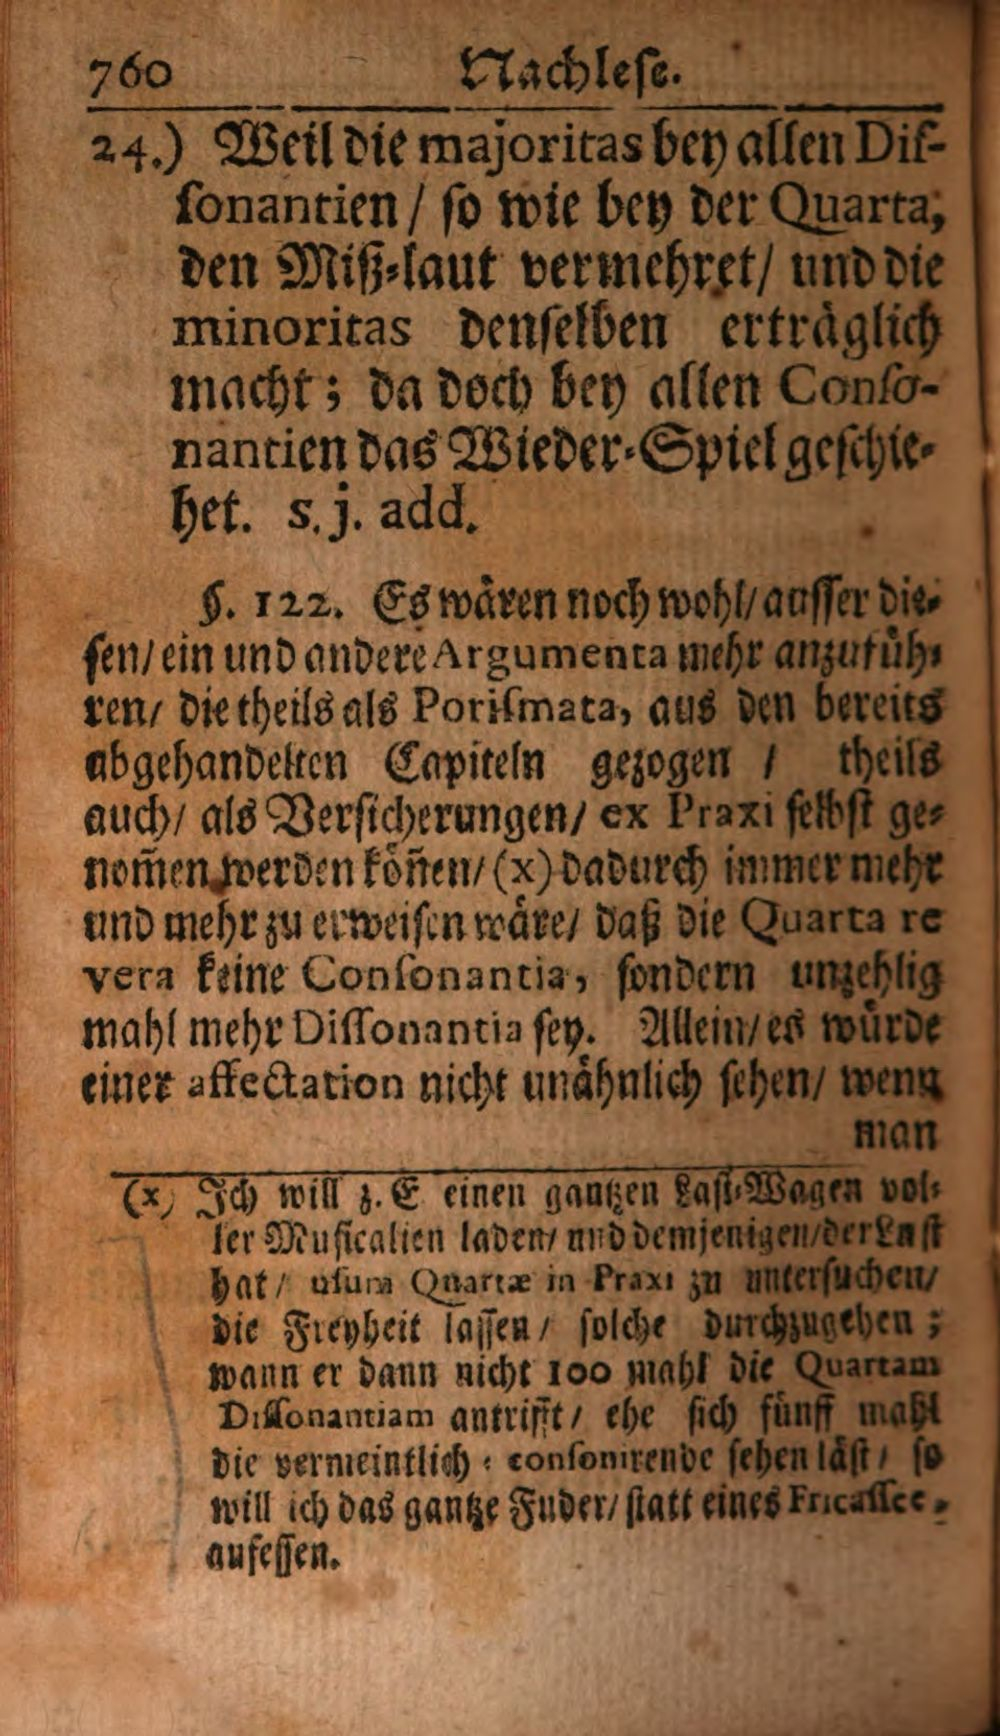 760 Nachlese.
24.) Weil die majoritas bey allen Dis-
sonantien / so wie bey der Quarta,
den Miß-laut vermehret/ und die
minoritas denselben erträglich
macht; da doch bey allen Conso-
nantien das Wieder-Spiel geschie-
het. s. j. add.
§. 122. Es wären noch wohl/ ausser die-
sen/ ein und andere Argumenta mehr anzufüh-
ren/ die theils als Porismata, aus den bereits
abgehandelten Capiteln gezogen / theils
auch/ als Versicherungen/ ex Praxi selbst ge-
nom̃en werden köñen/ (x) dadurch immer mehr
und mehr zu erweisen wäre/ daß die Quarta re
vera keine Consonantia, sondern unzehlig
mahl mehr Dissonantia sey. Allein/ es würde
einer affectation nicht unähnlich sehen/ wenn
man
(x) Ich will z. E einen gantzen Last-Wagen vol-
ler Musicalien laden/ und demjenigen/ der Lust
hat / usum Quartæ in Praxi zu untersuchen/
die Freyheit lassen / solche durchzugehen ;
wann er dann nicht 100 mahl die Quartam
Dissonantiam antrifft / ehe sich fünff mahl
die vermeintlich - consonirende sehen läst / so
will ich das gantze Fuder/ statt eines Fricassee,
aufessen.